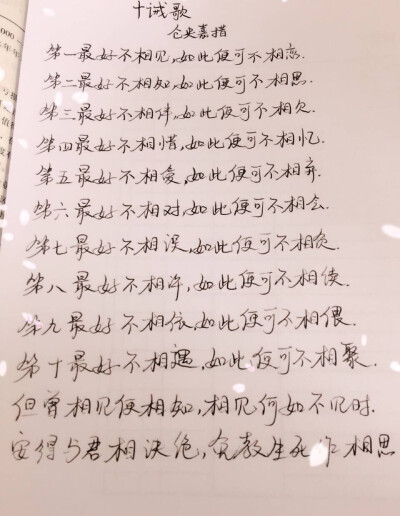 十诫歌
仓央嘉措
第一最好不相见,如此便可不相恋.
第二最好不相知,如此便可不相思.
第三最好不相伴,如此便可不相欠.
第四最好不相惜,如此便可不相忆.
第五最好不相爱,如此便可不相弃.
第六最好不相对,如此便可不相会.
第七最好不相误,如此便可不相负.
第八最好不相许,如此便可不相续.
第九最好不相依,如此便可不相偎.
第十最好不相遇,如此便可不相聚.
但曾相见便相知,相见何如不见时.
安得与君相决绝,免教生死作相思